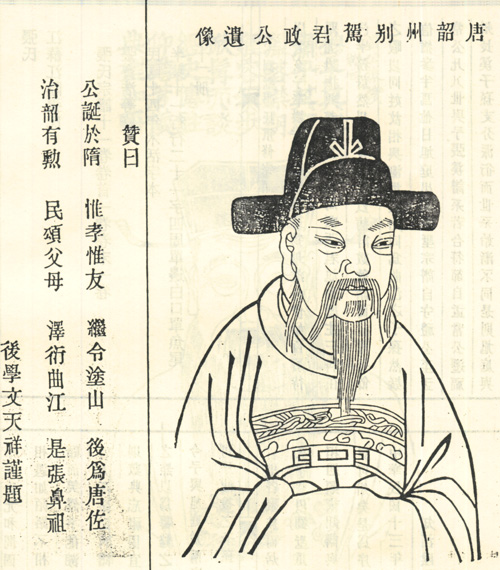 唐韶州别駕君政公遺像
贊曰
公誕於隋 惟孝惟友 繼令塗山 後為唐佐
治韶有勲 民頌父母 澤衍曲江 是張鼻祖
後學文天祥謹題